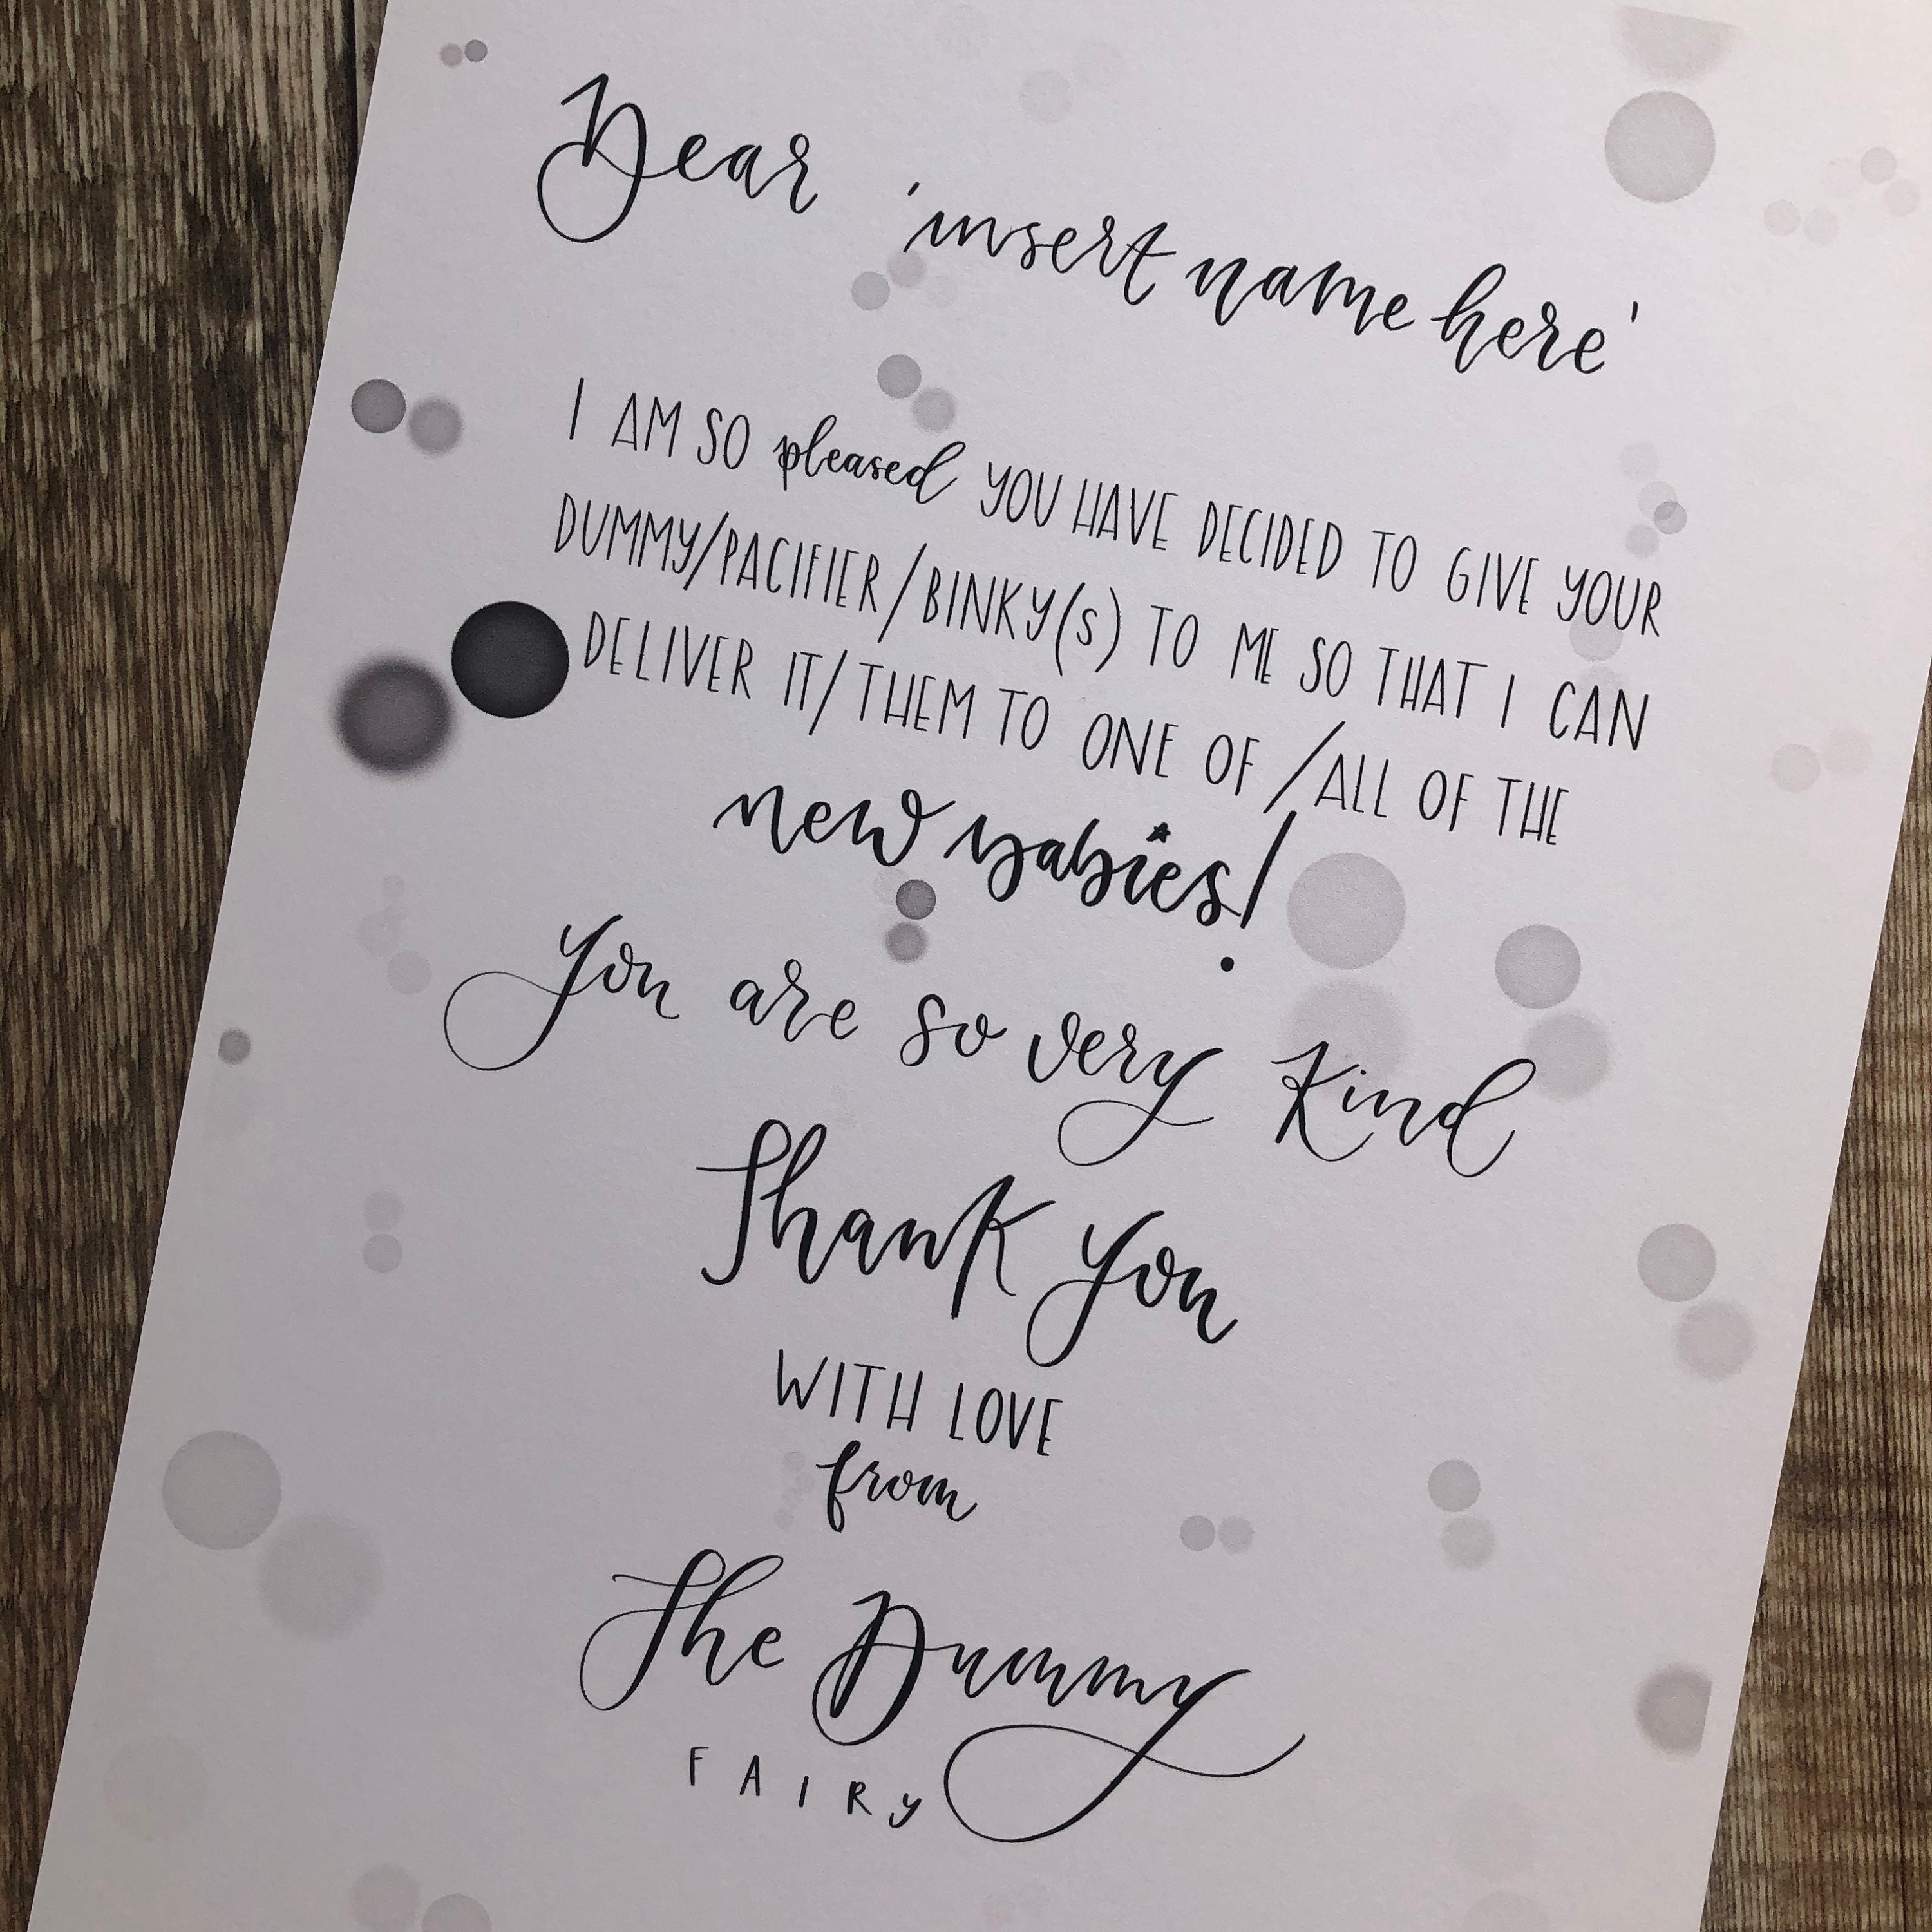 Dear 'insert name here'
I AM SO pleased YOU HAVE DECIDED TO GIVE YOUR
DUMMY/PACIFIER/BINKY(s) TO ME SO THAT I CAN
DELIVER IT/THEM TO ONE OF/ALL OF THE
new babies!
You are so very kind
Thank you
WITH LOVE
from
The Dummy
FAIRY